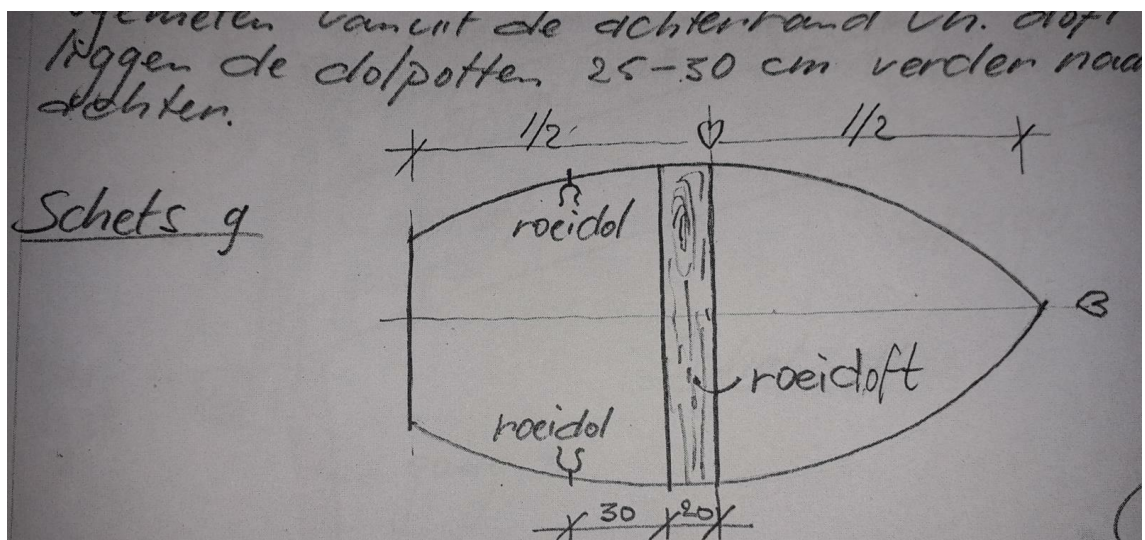 vanuit de achterrand vh. doft
liggen de dolpotten 25-30 cm verder naa
achter.
1/2 1/2
Schets g
roeidol
roeidoft
roeidol
30 20